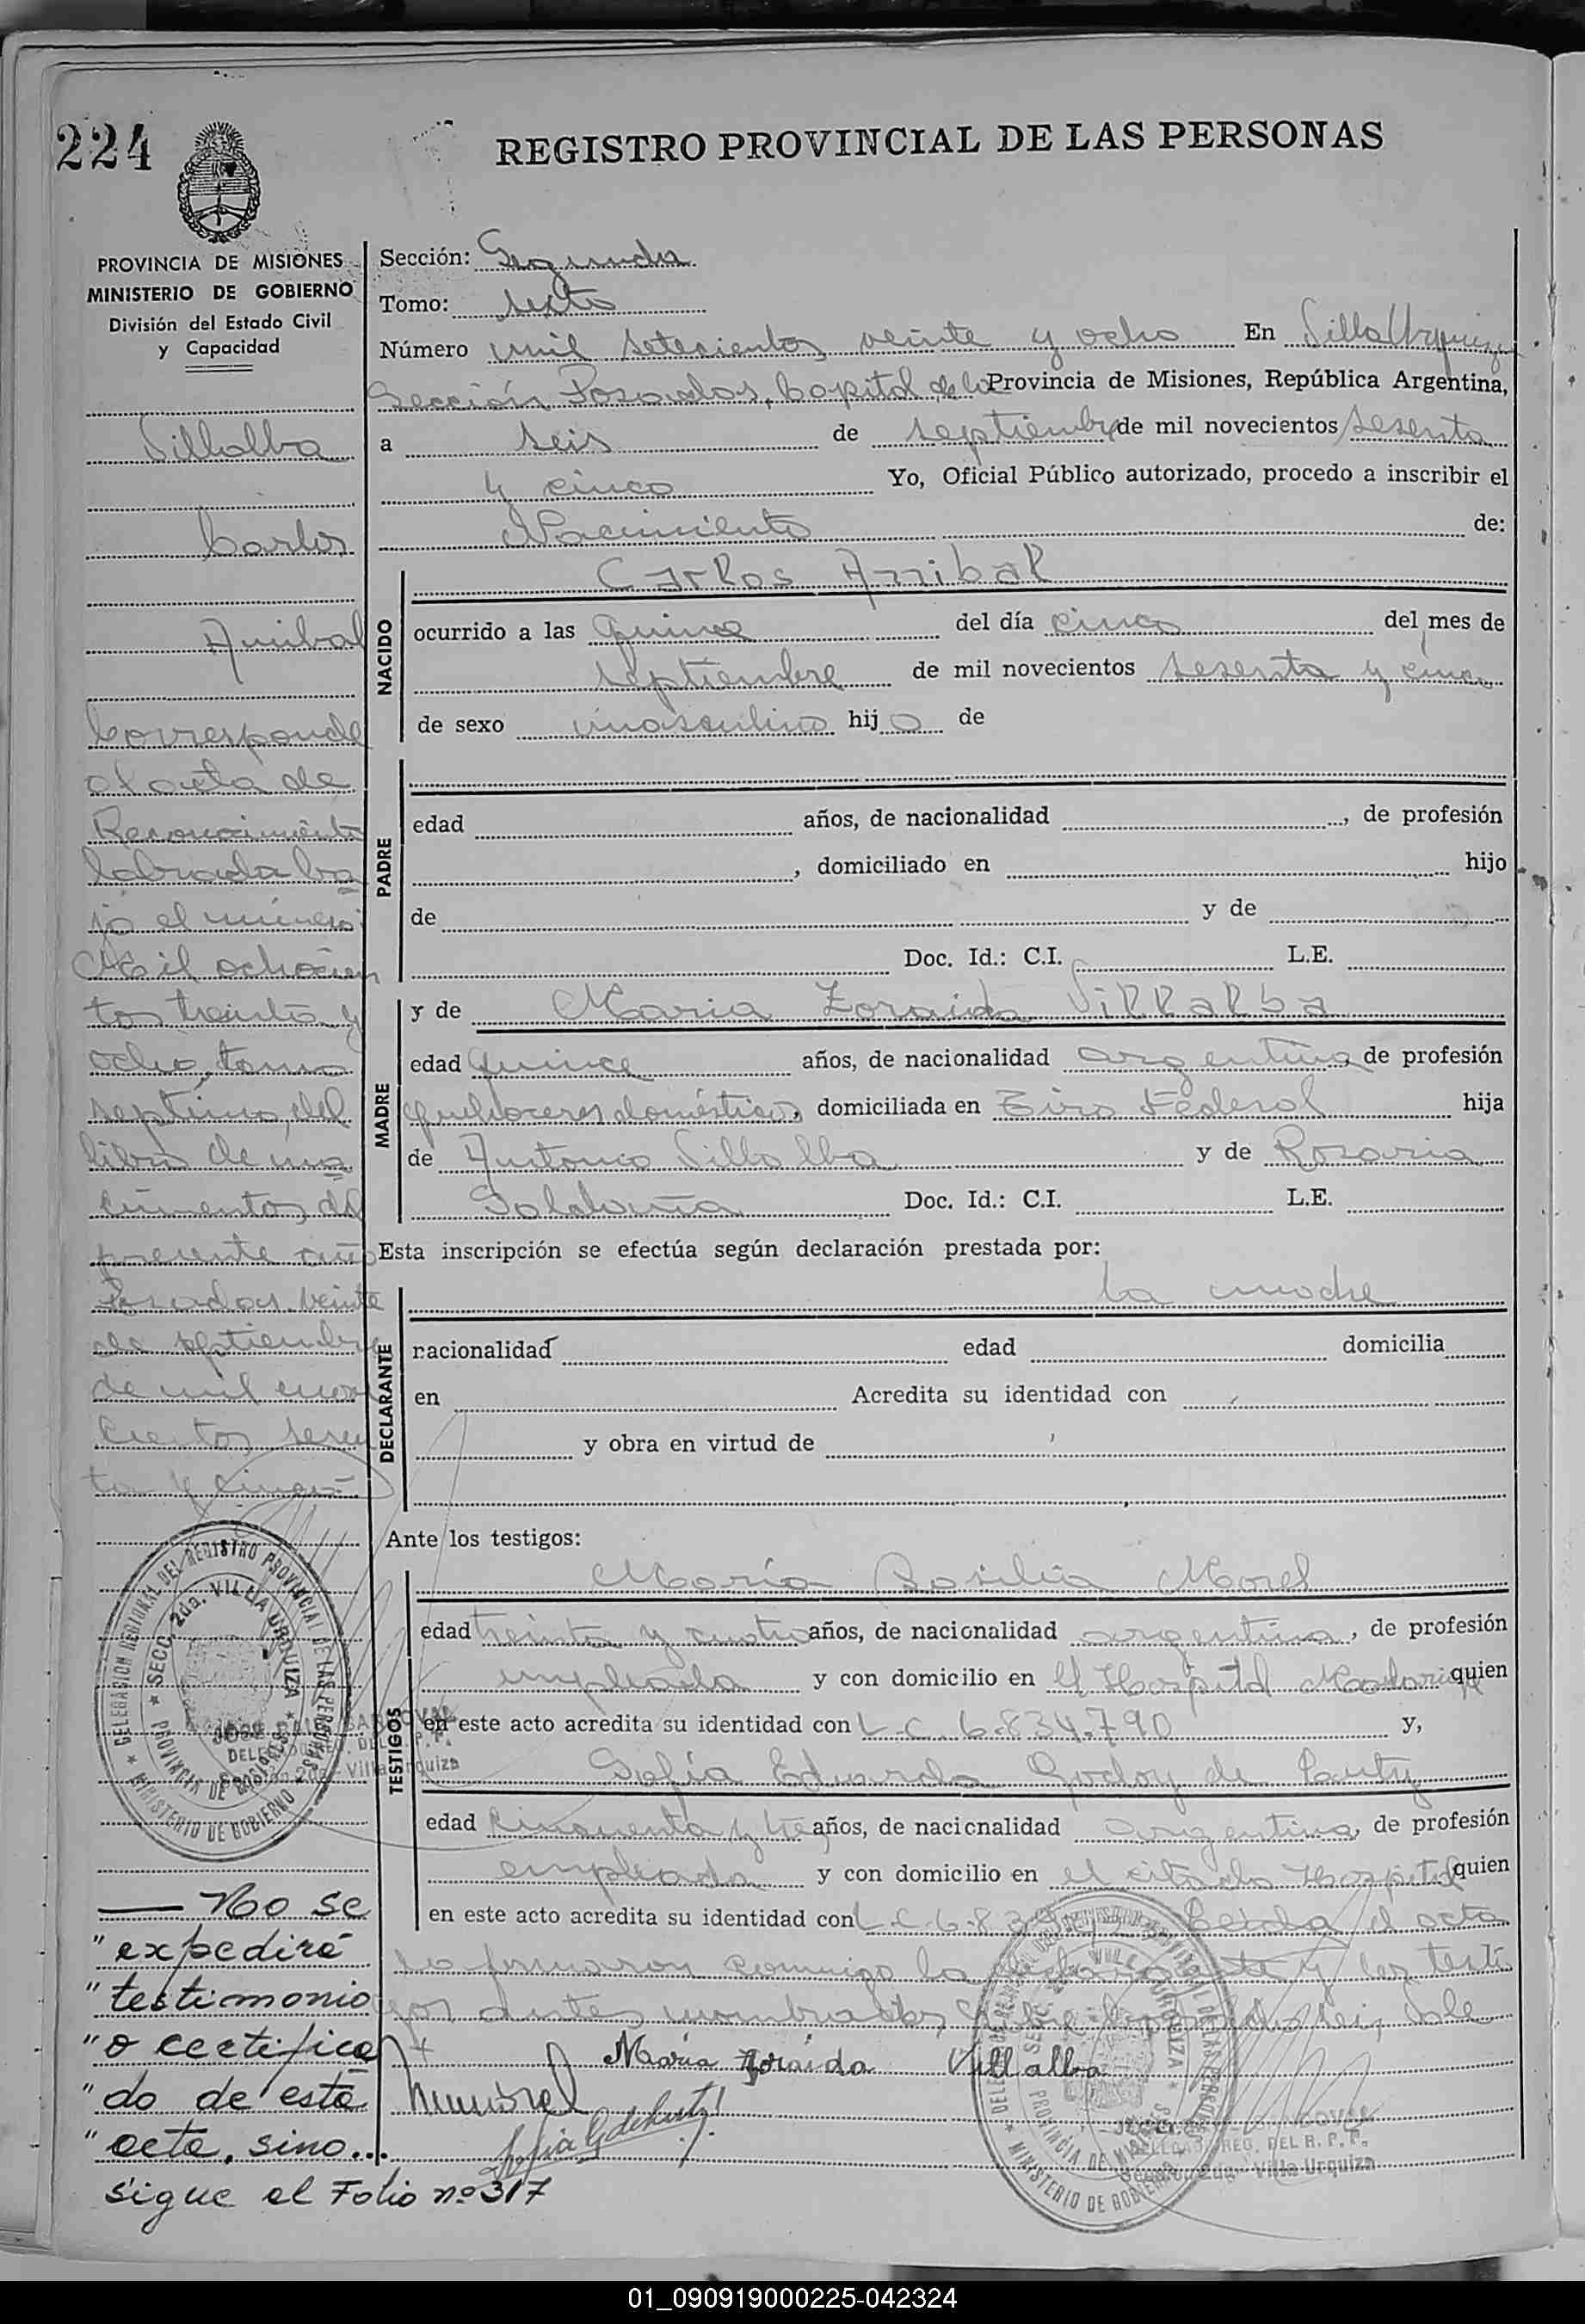 224
REGISTRO PROVINCIAL DE LAS PERSONAS
PROVINCIA DE MISIONES
MINISTERIO DE GOBIERNO
División del Estado Civil
y Capacidad
Villalba
Carlos
Anibal
Corresponde
al acta de
Reconocimiento
labrada ba
jo el número
Mil ochocien
tos treinta y
ocho, tomo
septimo, del
libro de na
cimientos del
presente año
Posadas veinte
de septiembre
de mil nove
cientos sesen
ta y cinco
No se
"expedirá
"testimonio
"o certifica
"do de esta
"acta, sino...
sigue al Folio nº 317
Sección: Segunda
Tomo: sexto
Número mil setecientos veinte y ocho En Villa Urquiza
Sección Posadas, Capital de la Provincia de Misiones, República Argentina,
a seis de septiembre de mil novecientos sesenta
y cinco Yo, Oficial Público autorizado, procedo a inscribir el
Nacimiento de:
NACIDO
Carlos Anibal
ocurrido a las quince del día cinco del mes de
septiembre de mil novecientos sesenta y cinco
de sexo masculino hijo de
PADRE
edad años, de nacionalidad , de profesión
, domiciliado en hijo
de y de
Doc. Id.: C.I. L.E.
MADRE
y de Maria Zoraida Villalba
edad quince años, de nacionalidad argentina, de profesión
quehaceres domésticos, domiciliada en Tiro Federal hija
de Antonio Villalba y de Rosario
Doc. Id.: C.I. L.E.
Esta inscripción se efectúa según declaración prestada por:
la madre
DECLARANTE
nacionalidad edad domicilia
en Acredita su identidad con
y obra en virtud de
Ante los testigos:
TESTIGOS
María Basilia Morel
edad treinta y cuatro años, de nacionalidad argentina, de profesión
empleada y con domicilio en el Hospital Madariaga quien
en este acto acredita su identidad con L.C. 6.834.790 y,
Sofía Eduarda Godoy de
edad cincuenta y tres años, de nacionalidad argentina, de profesión
empleada y con domicilio en el citado Hospital quien
en este acto acredita su identidad con L.C. 6.83 Leida el acta
la firmaron conmigo la declarante y los testi
gos antes nombrados, Vale
María Zoraida Villalba
DELEGACION REGIONAL DEL REGISTRO PROVINCIAL DE LAS PERSONAS
SECC. 2da. VILLA URQUIZA
PROVINCIA DE MISIONES
MINISTERIO DE GOBIERNO
DELEGADO REG. DEL R. P. P.
Sección 2da. Villa Urquiza
01_090919000225-042324